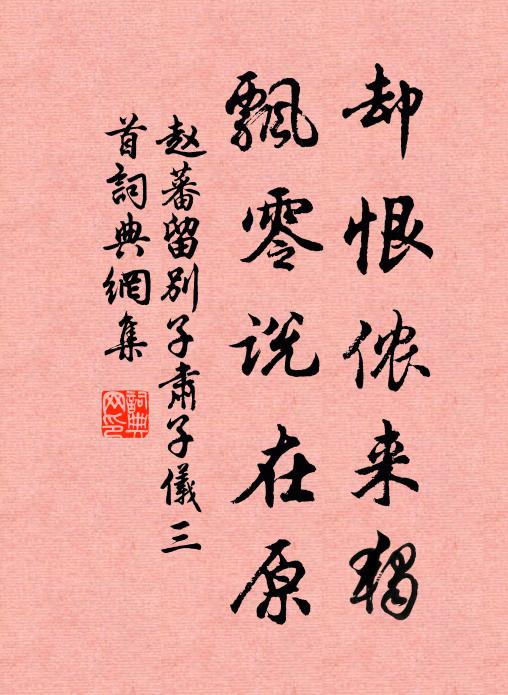 却恨侬来独
飘零说在原
赵蕃留别子肃子儀三
首詞典網集
詞典
网印